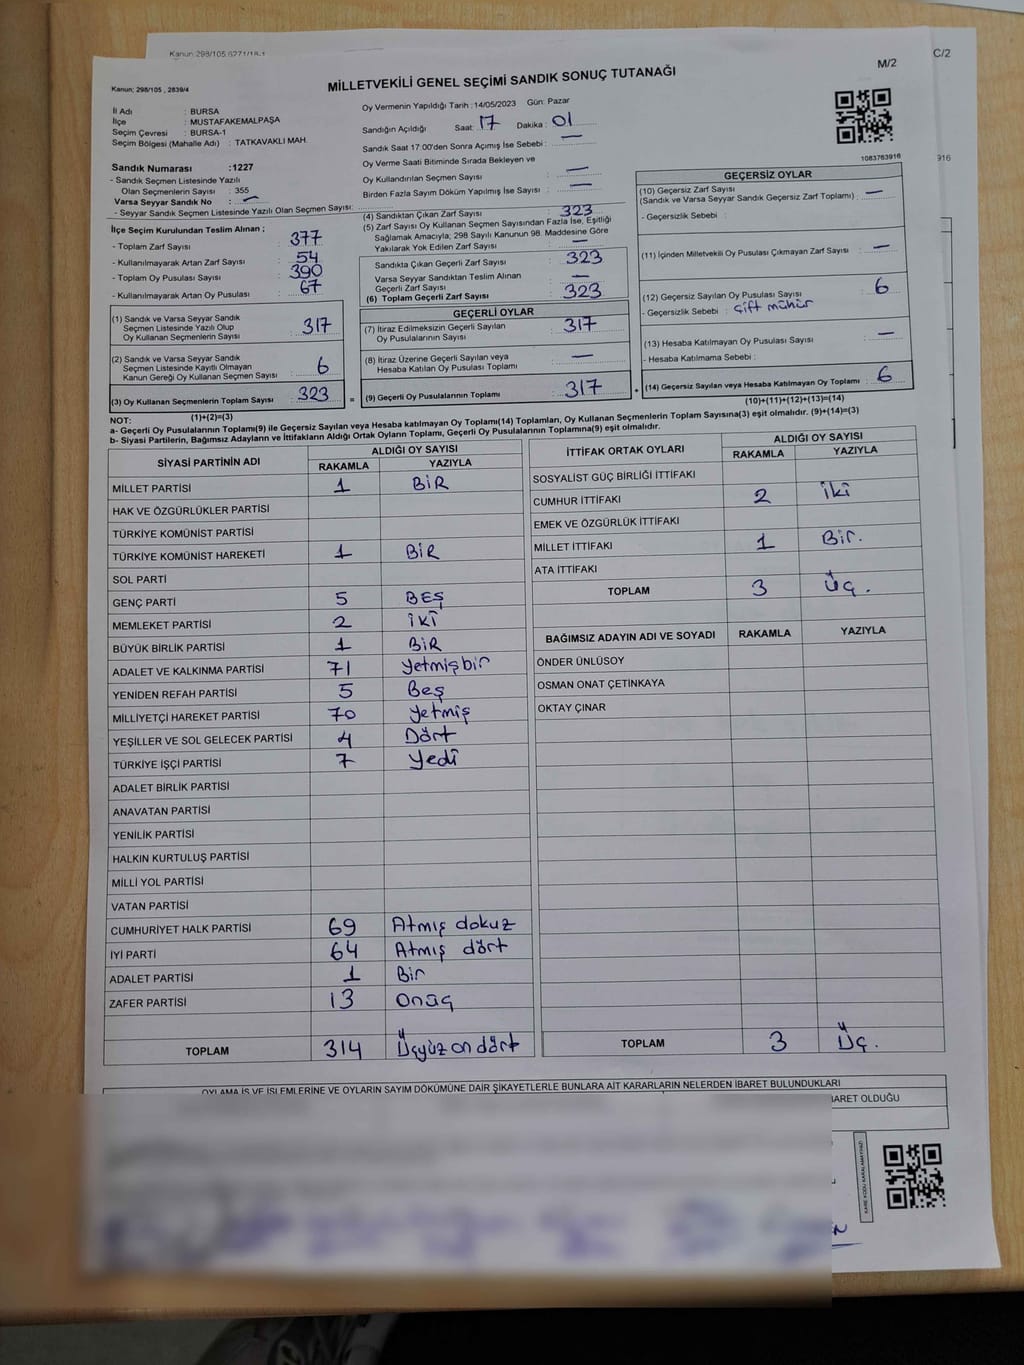 Kanun 298/105,6271/18-1
C/2
M/2
Kanun: 298/105 , 2839/4
MİLLETVEKİLİ GENEL SEÇİMİ SANDIK SONUÇ TUTANAĞI
İl Adı : BURSA
İlçe : MUSTAFAKEMALPAŞA
Seçim Çevresi : BURSA-1
Seçim Bölgesi (Mahalle Adı) : TATKAVAKLI MAH.
Sandık Numarası :1227
- Sandık Seçmen Listesinde Yazılı
Olan Seçmenlerin Sayısı : 355
Varsa Seyyar Sandık No : —
- Seyyar Sandık Seçmen Listesinde Yazılı Olan Seçmen Sayısı:
Oy Vermenin Yapıldığı Tarih :14/05/2023 Gün: Pazar
Sandığın Açıldığı Saat: 17 Dakika : 01
Sandık Saat 17:00'den Sonra Açımış İse Sebebi : —
Oy Verme Saati Bitiminde Sırada Bekleyen ve
Oy Kullandırılan Seçmen Sayısı : —
Birden Fazla Sayım Döküm Yapılmış İse Sayısı : —
1083763916
916
İlçe Seçim Kurulundan Teslim Alınan ;
- Toplam Zarf Sayısı : 377
- Kullanılmayarak Artan Zarf Sayısı : 54
- Toplam Oy Pusulası Sayısı : 390
- Kullanılmayarak Artan Oy Pusulası : 67
(1) Sandık ve Varsa Seyyar Sandık
Seçmen Listesinde Yazılı Olup
Oy Kullanan Seçmenlerin Sayısı : 317
(2) Sandık ve Varsa Seyyar Sandık
Seçmen Listesinde Kayıtlı Olmayan
Kanun Gereği Oy Kullanan Seçmen Sayısı : 6
(3) Oy Kullanan Seçmenlerin Toplam Sayısı : 323
(1)+(2)=(3)
(4) Sandıktan Çıkan Zarf Sayısı : 323
(5) Zarf Sayısı Oy Kullanan Seçmen Sayısından Fazla İse, Eşitliği
Sağlamak Amacıyla, 298 Sayılı Kanunun 98. Maddesine Göre
Yakılarak Yok Edilen Zarf Sayısı : —
Sandıkta Çıkan Geçerli Zarf Sayısı : 323
Varsa Seyyar Sandıktan Teslim Alınan
Geçerli Zarf Sayısı : —
(6) Toplam Geçerli Zarf Sayısı : 323
GEÇERLİ OYLAR
(7) İtiraz Edilmeksizin Geçerli Sayılan
Oy Pusulalarının Sayısı : 317
(8) İtiraz Üzerine Geçerli Sayılan veya
Hesaba Katılan Oy Pusulası Toplamı : —
= (9) Geçerli Oy Pusulalarının Toplamı : 317 +
GEÇERSİZ OYLAR
(10) Geçersiz Zarf Sayısı
(Sandık ve Varsa Seyyar Sandık Geçersiz Zarf Toplamı) : —
- Geçersizlik Sebebi :
(11) İçinden Milletvekili Oy Pusulası Çıkmayan Zarf Sayısı : —
(12) Geçersiz Sayılan Oy Pusulası Sayısı : 6
- Geçersizlik Sebebi : Çift mühür
(13) Hesaba Katılmayan Oy Pusulası Sayısı : —
- Hesaba Katılmama Sebebi :
(14) Geçersiz Sayılan veya Hesaba Katılmayan Oy Toplamı : 6
(10)+(11)+(12)+(13)=(14)
NOT:
a- Geçerli Oy Pusulasının Toplamı(9) ile Geçersiz Sayılan veya Hesaba katılmayan Oy Toplamı(14) Toplamları, Oy Kullanan Seçmenlerin Toplam Sayısına(3) eşit olmalıdır. (9)+(14)=(3)
b- Siyasi Partilerin, Bağımsız Adayların ve İttifakların Aldığı Ortak Oyların Toplamı, Geçerli Oy Pusulasının Toplamına(9) eşit olmalıdır.
SİYASİ PARTİNİN ADI ALDIĞI OY SAYISI
RAKAMLA YAZIYLA
MİLLET PARTİSİ 1 BİR
HAK VE ÖZGÜRLÜKLER PARTİSİ
TÜRKİYE KOMÜNİST PARTİSİ
TÜRKİYE KOMÜNİST HAREKETİ 1 BİR
SOL PARTİ
GENÇ PARTİ 5 BEŞ
MEMLEKET PARTİSİ 2 iki
BÜYÜK BİRLİK PARTİSİ 1 BİR
ADALET VE KALKINMA PARTİSİ 71 Yetmişbir
YENİDEN REFAH PARTİSİ 5 Beş
MİLLİYETÇİ HAREKET PARTİSİ 70 Yetmiş
YEŞİLLER VE SOL GELECEK PARTİSİ 4 Dört
TÜRKİYE İŞÇİ PARTİSİ 7 Yedi
ADALET BİRLİK PARTİSİ
ANAVATAN PARTİSİ
YENİLİK PARTİSİ
HALKIN KURTULUŞ PARTİSİ
MİLLİ YOL PARTİSİ
VATAN PARTİSİ
CUMHURİYET HALK PARTİSİ 69 Atmış dokuz
İYİ PARTİ 64 Atmış dört
ADALET PARTİSİ 1 Bir
ZAFER PARTİSİ 13 Onüç
TOPLAM 314 Üçyüz on dört
İTTİFAK ORTAK OYLARI ALDIĞI OY SAYISI
RAKAMLA YAZIYLA
SOSYALİST GÜÇ BİRLİĞİ İTTİFAKI
CUMHUR İTTİFAKI 2 iki
EMEK VE ÖZGÜRLÜK İTTİFAKI
MİLLET İTTİFAKI 1 Bir.
ATA İTTİFAKI
TOPLAM 3 Üç.
BAĞIMSIZ ADAYIN ADI VE SOYADI RAKAMLA YAZIYLA
ÖNDER ÜNLÜSOY
OSMAN ONAT ÇETİNKAYA
OKTAY ÇINAR
TOPLAM 3 Üç.
OYLAMA İŞ VE İŞLEMLERİNE VE OYLARIN SAYIM DÖKÜMÜNE DAİR ŞİKAYETLERLE BUNLARA AİT KARARLARIN NELERDEN İBARET BULUNDUKLARI
BARET OLDUĞU
KARE KODU KARALAMAYINIZ!